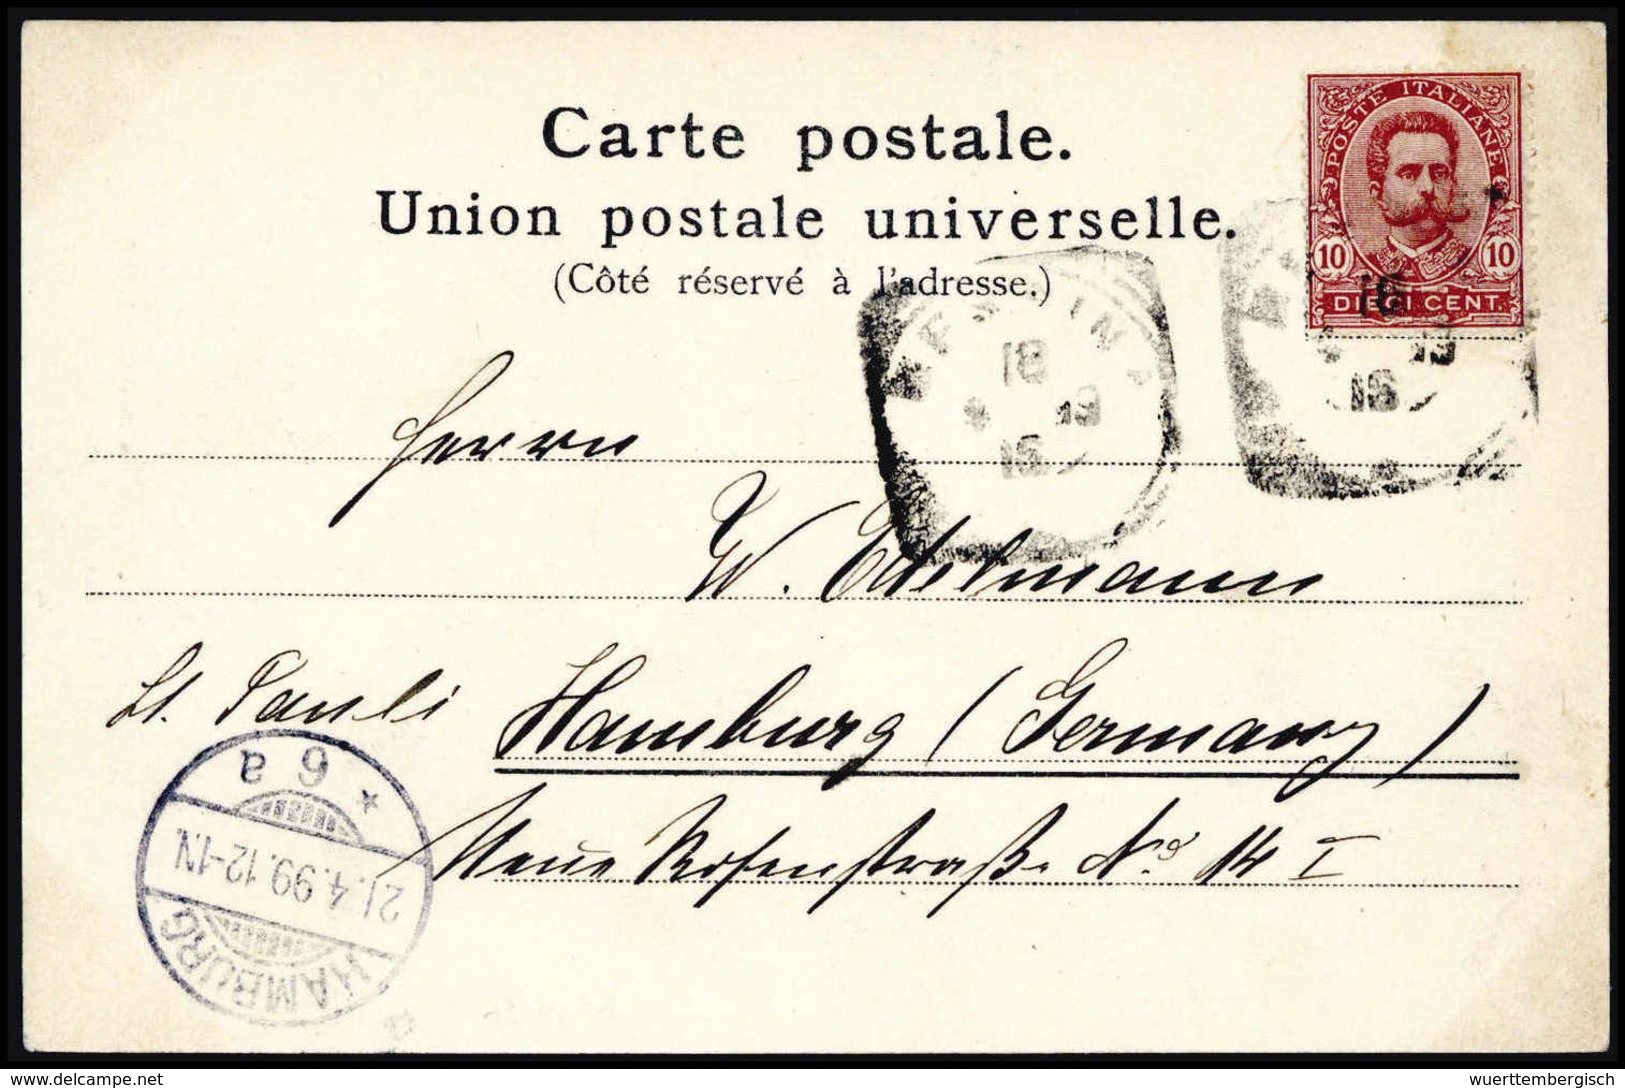 Carte postale.
Union postale universelle.
(Côté réservé à l'adresse.)
POSTE ITALIANE
10 10
DIECI CENT.
18
19
15
18
19
15
Herrn
W. Edelmann
St. Pauli Hamburg (Germany)
Neue Rosenstraße No 14 I
HAMBURG
21.4.99.12-1N.
* 6 a
delcampe.net
wuerttembergisch